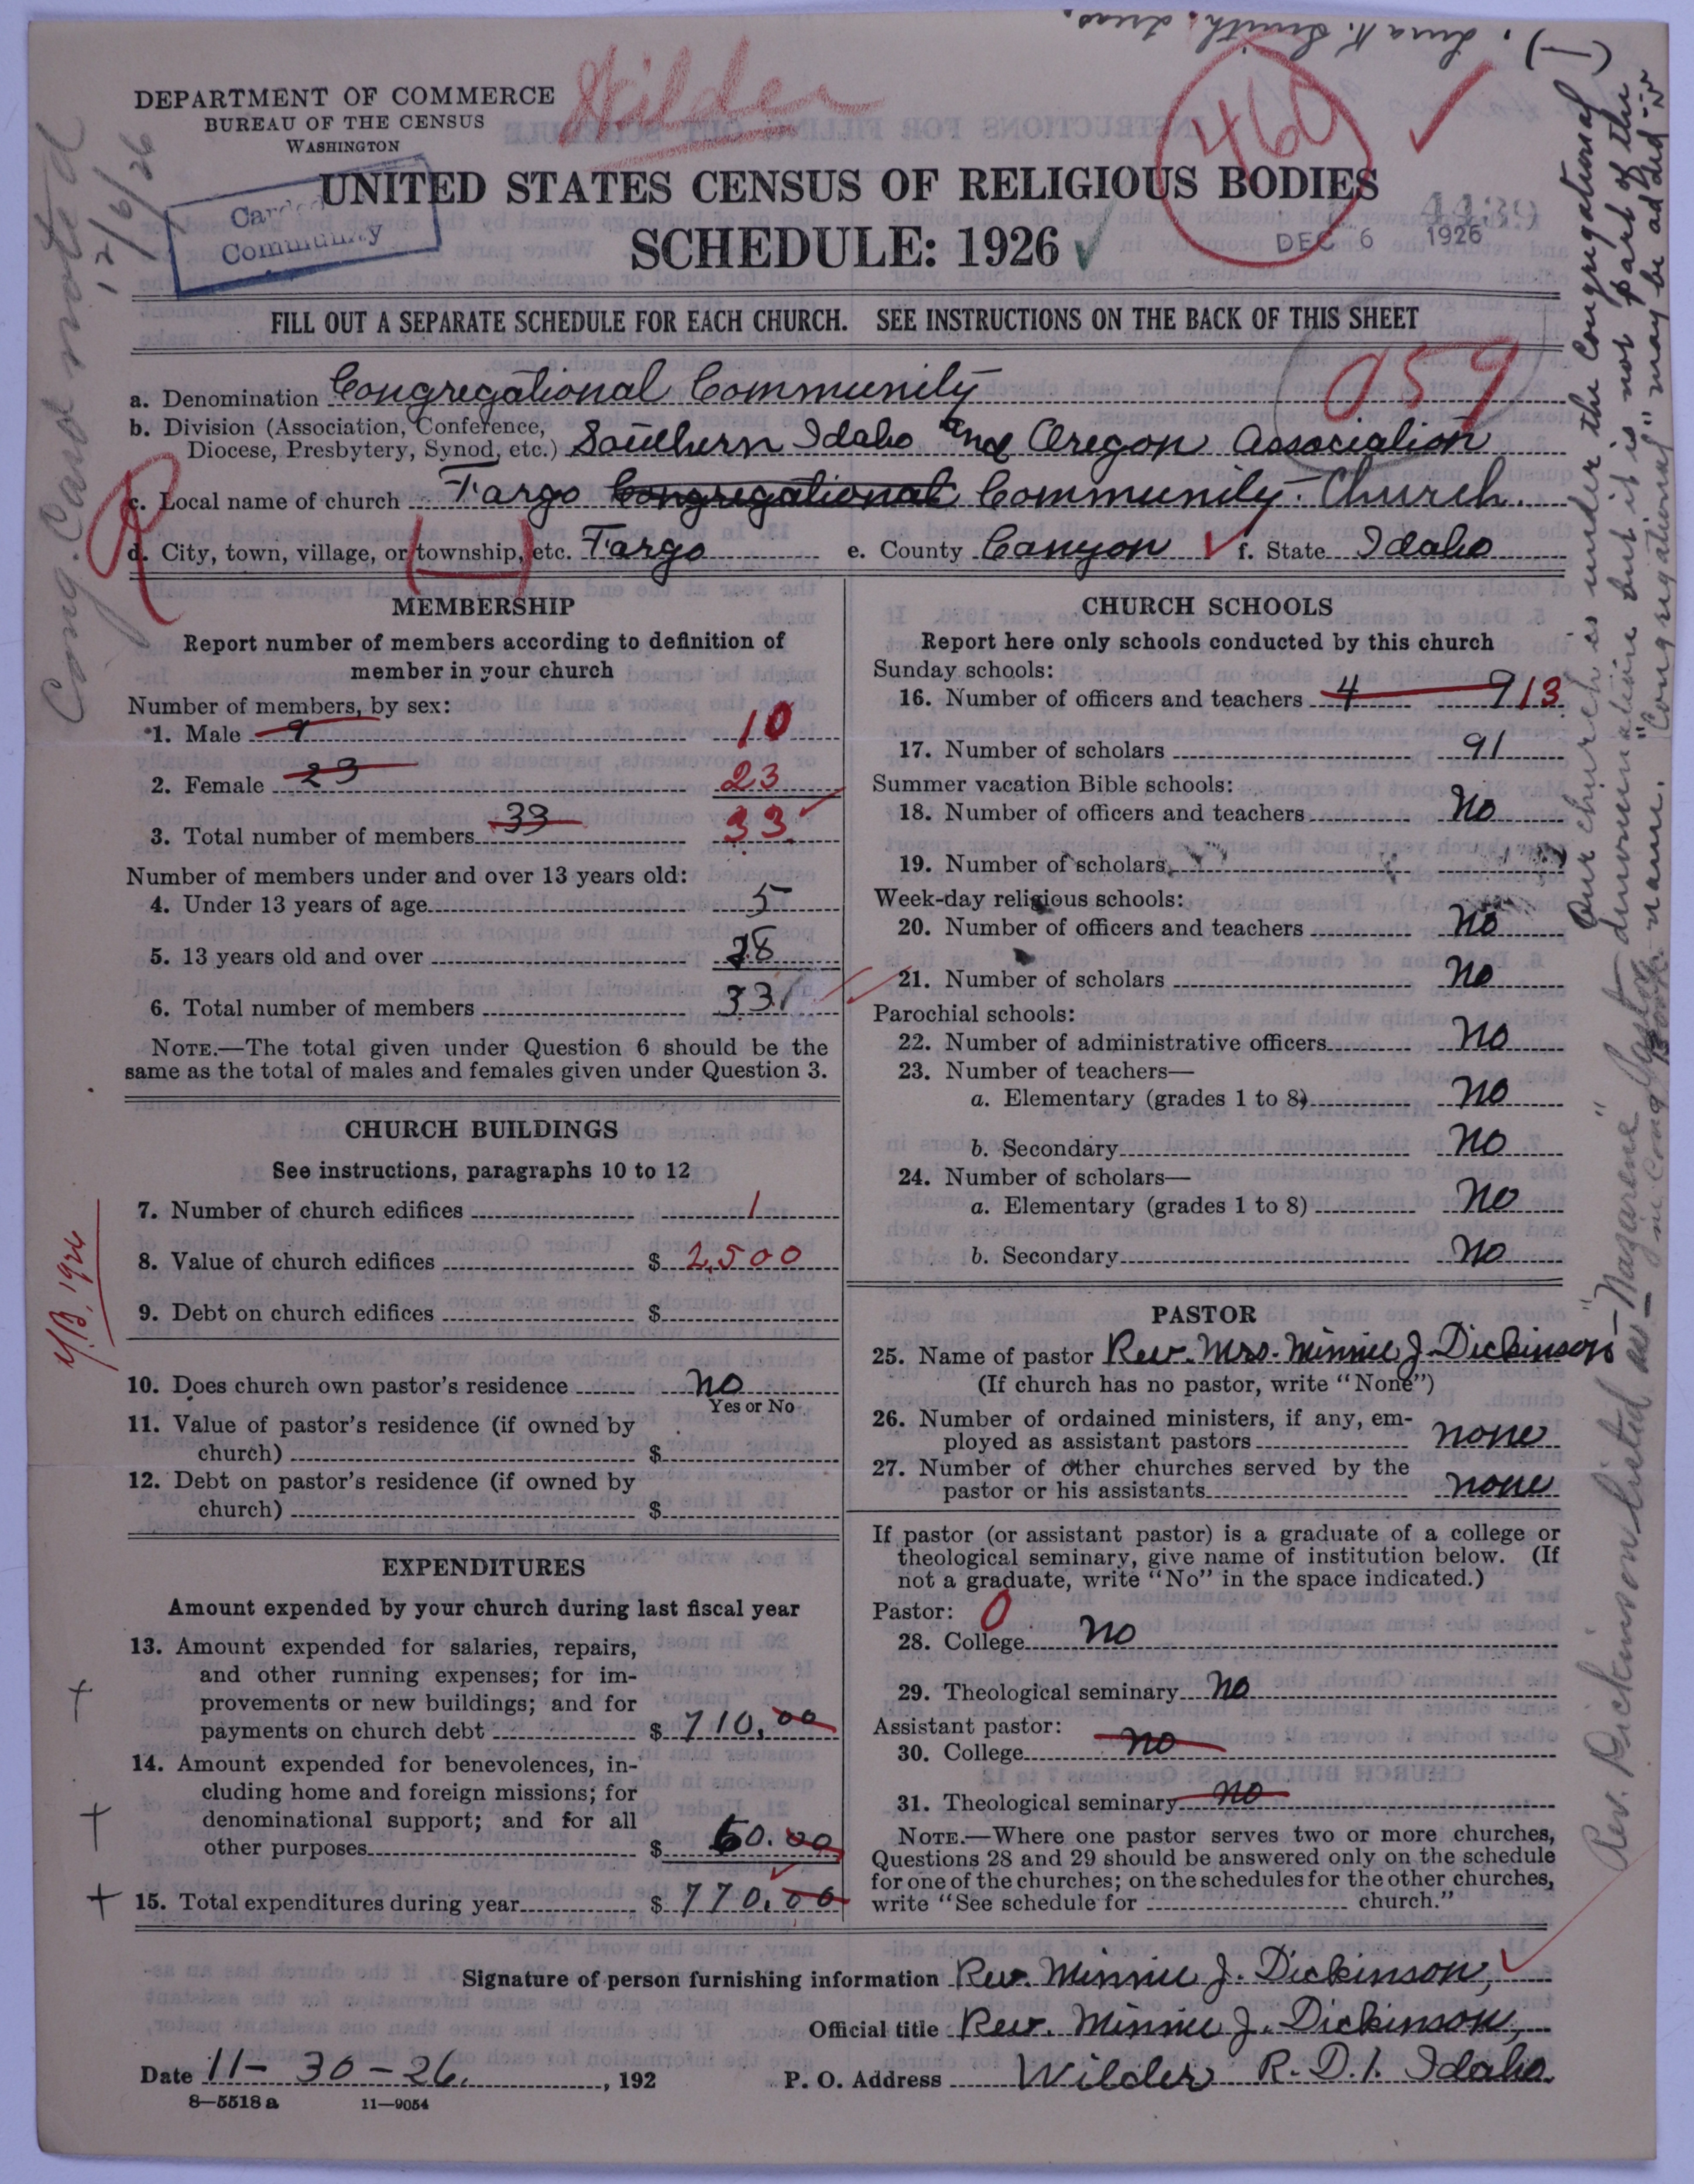 . Ina K. Smith. Treas.
Wilder
460
DEPARTMENT OF COMMERCE
BUREAU OF THE CENSUS
WASHINGTON
Card
Community
UNITED STATES CENSUS OF RELIGIOUS BODIES
SCHEDULE: 1926
4439
DEC 6 1926
FILL OUT A SEPARATE SCHEDULE FOR EACH CHURCH. SEE INSTRUCTIONS ON THE BACK OF THIS SHEET
059
a. Denomination Congregational Community
b. Division (Association, Conference,
Diocese, Presbytery, Synod, etc.) Southern Idaho and Oregon Association
c. Local name of church Fargo Congregational Community Church.
d. City, town, village, or township, etc. Fargo e. County Canyon f. State Idaho
R
MEMBERSHIP
Report number of members according to definition of
member in your church
Number of members, by sex:
1. Male 9 10
2. Female 23 23
3. Total number of members 33 33
Number of members under and over 13 years old:
4. Under 13 years of age 5
5. 13 years old and over 28
6. Total number of members 33
NOTE.—The total given under Question 6 should be the
same as the total of males and females given under Question 3.
CHURCH BUILDINGS
See instructions, paragraphs 10 to 12
7. Number of church edifices 1
8. Value of church edifices $ 2,500
9. Debt on church edifices $
10. Does church own pastor's residence no
Yes or No
11. Value of pastor's residence (if owned by
church) $
12. Debt on pastor's residence (if owned by
church) $
EXPENDITURES
Amount expended by your church during last fiscal year
13. Amount expended for salaries, repairs,
and other running expenses; for im-
provements or new buildings; and for
payments on church debt $ 710.00
14. Amount expended for benevolences, in-
cluding home and foreign missions; for
denominational support; and for all
other purposes $ 60.00
15. Total expenditures during year $ 770.00
CHURCH SCHOOLS
Report here only schools conducted by this church
Sunday schools:
16. Number of officers and teachers 4 9 13
17. Number of scholars 91
Summer vacation Bible schools:
18. Number of officers and teachers no
19. Number of scholars
Week-day religious schools:
20. Number of officers and teachers no
21. Number of scholars no
Parochial schools:
22. Number of administrative officers no
23. Number of teachers—
a. Elementary (grades 1 to 8) no
b. Secondary no
24. Number of scholars—
a. Elementary (grades 1 to 8) no
b. Secondary no
PASTOR
25. Name of pastor Rev. Mrs. Minnie J. Dickinson
(If church has no pastor, write "None")
26. Number of ordained ministers, if any, em-
ployed as assistant pastors none
27. Number of other churches served by the
pastor or his assistants none
If pastor (or assistant pastor) is a graduate of a college or
theological seminary, give name of institution below. (If
not a graduate, write "No" in the space indicated.)
Pastor: 0
28. College no
29. Theological seminary no
Assistant pastor:
30. College no
31. Theological seminary no
NOTE.—Where one pastor serves two or more churches,
Questions 28 and 29 should be answered only on the schedule
for one of the churches; on the schedules for the other churches,
write "See schedule for church."
Signature of person furnishing information Rev. Minnie J. Dickinson,
Official title Rev. Minnie J. Dickinson,
Date 11-30-26. , 192 P. O. Address Wilder R.D.1. Idaho.
8—5518a 11—9054
Cong. Card noted
12/6/26
Y.B. 1926
Our church is under the Congregational
denomination but it is not part of the
name. "Congregational" may be added
Rev. Dickinson listed as "Nazarene" Pastor
in Cong. Book